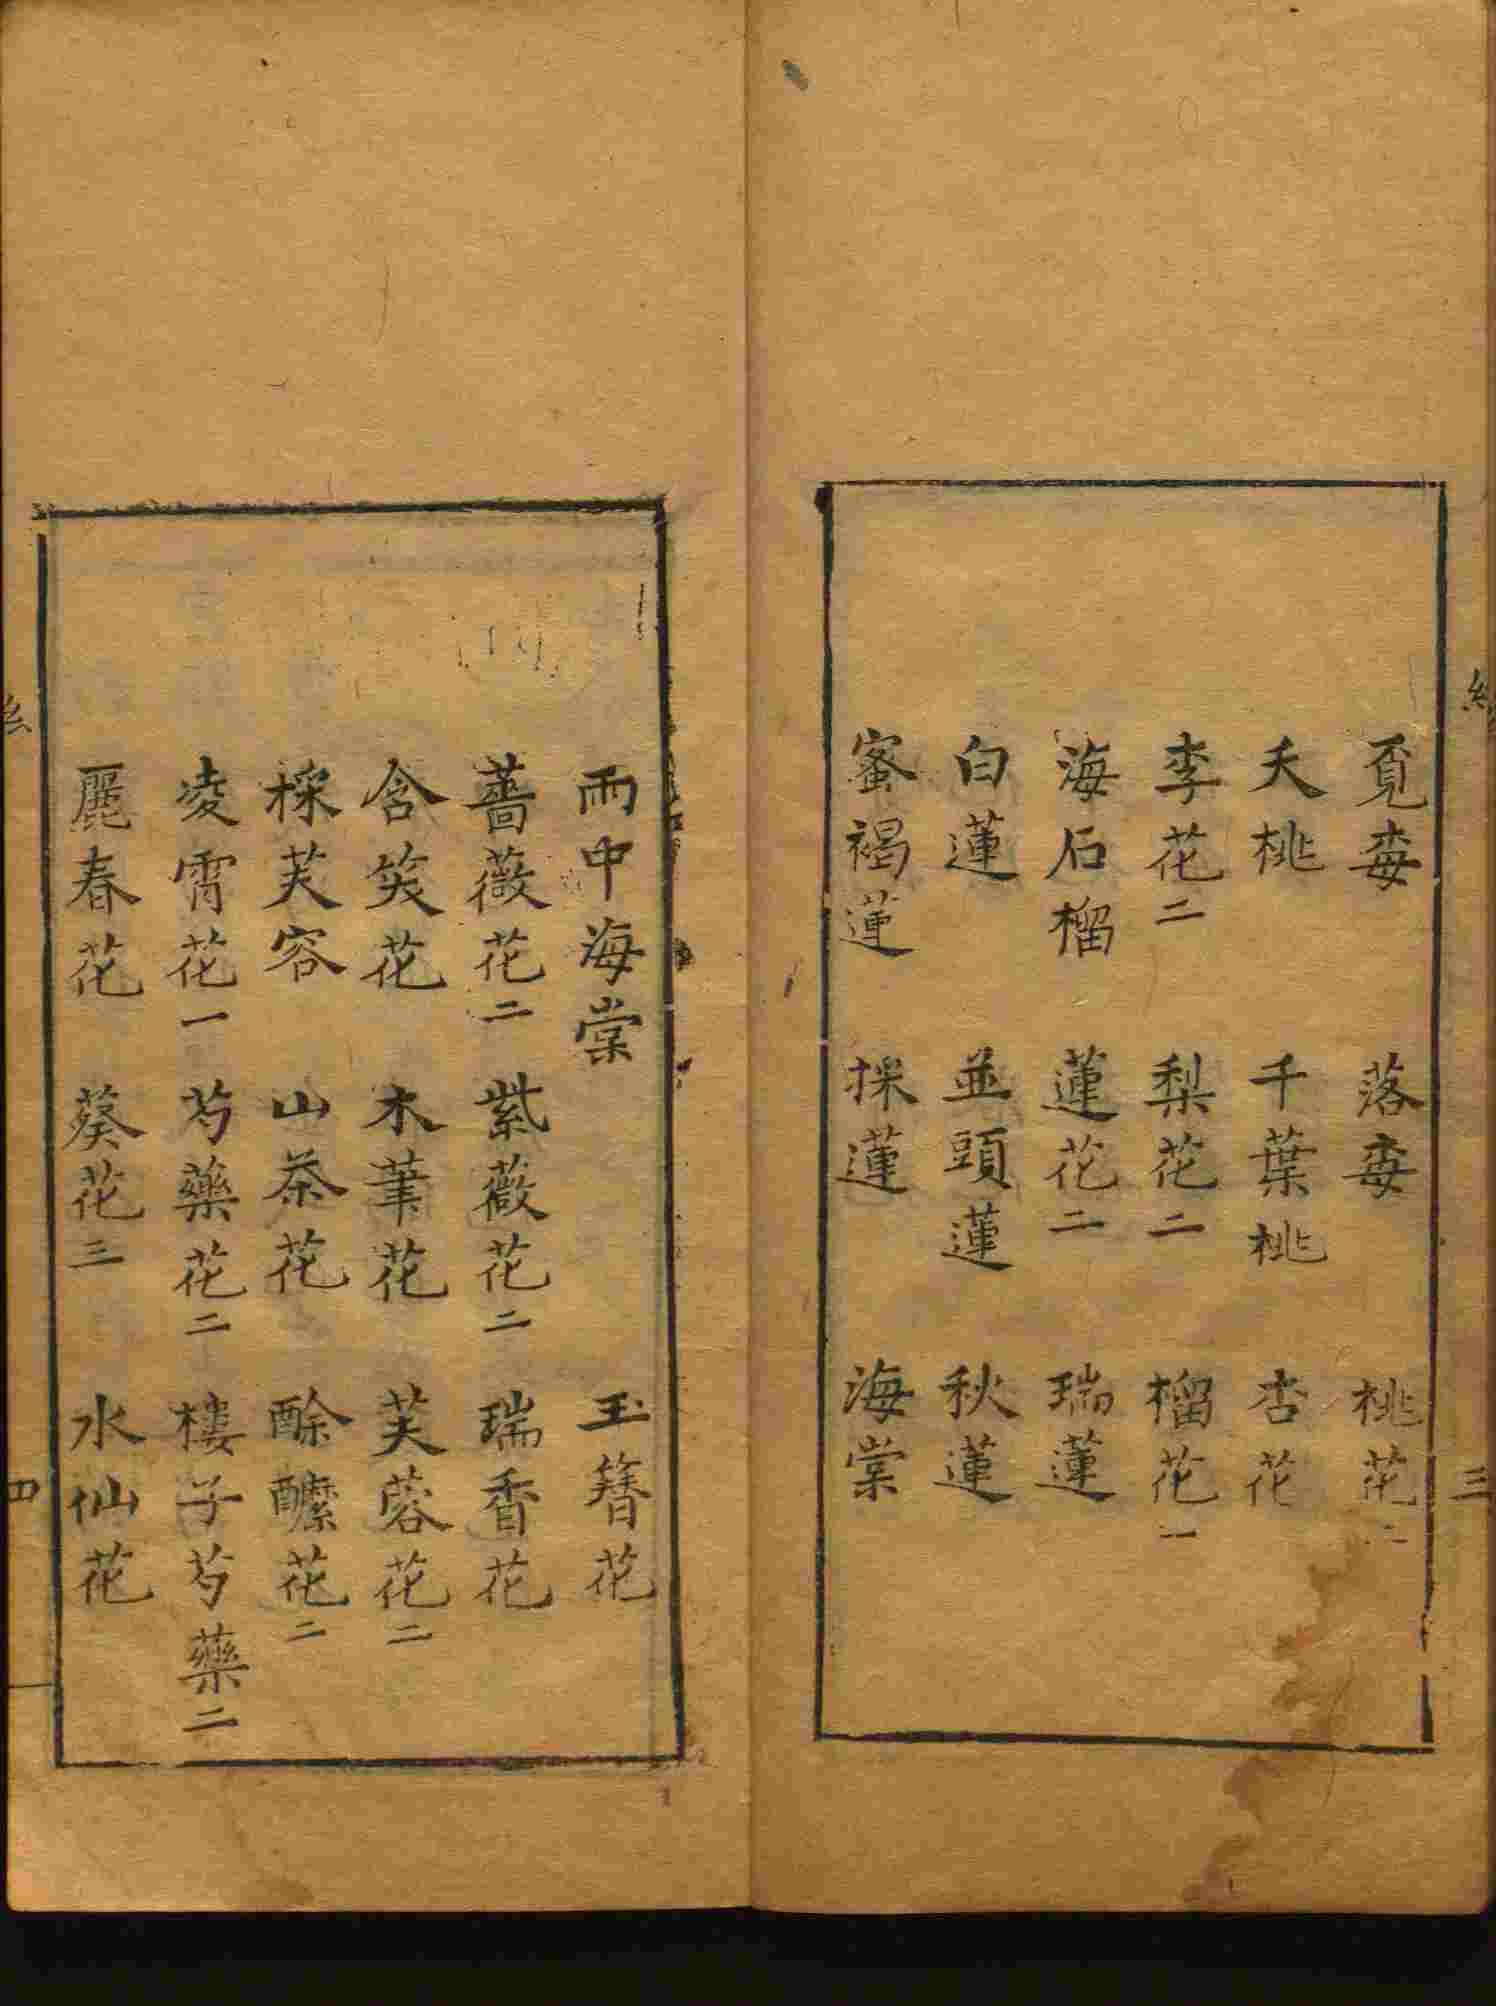 覓梅　落梅　桃花二
夭桃　千葉桃　杏花
李花二　梨花二　榴花一
海石榴　蓮花二　瑞蓮
白蓮　並頭蓮　秋蓮
蜜褐蓮　採蓮　海棠
三
雨中海棠　玉簪花
薔薇花二　紫薇花二　瑞香花
含笑花　木筆花　芙蓉花二
棌芙容　山茶花　酴醿花二
凌霄花一　芍藥花二　樓子芍藥二
麗春花　葵花三　水仙花
四